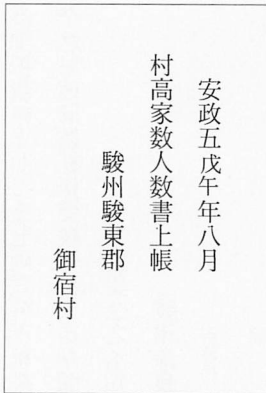 安政五戊午年八月
村高家数人数書上帳
駿州駿東郡
御宿村